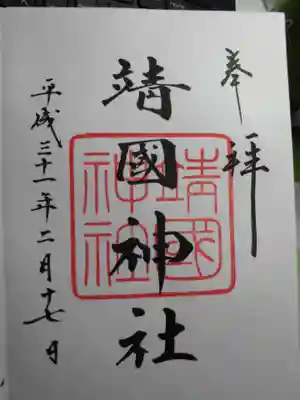 奉拝
靖國神社
靖國神社
平成三十一年二月十七日